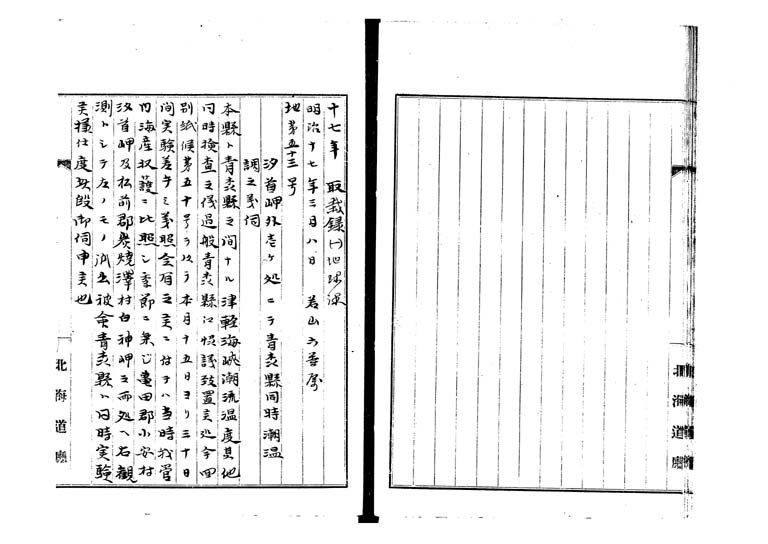 十七年 取裁録(一)地理課
明治十七年三月八日 若山六等属
地第五十三号
汐首岬外壱ヶ処ニテ青森縣同時潮温
調之義伺
本縣ト青森縣之間ナル津軽海峡潮流温度其他
同時検査之儀過般青森縣江協議致置候処今回
別紙候第五十号ヲ以テ本月十五日ヨリ三十日
間実験差出シ之義照会有之候ニ付テハ当時我管
内海産収護ニ比照シ季節ニ業ジ亀田郡小安村
汐首岬及松前郡炭焼澤村白神岬之両処ヘ右観
測トシテ左ノモノ派出被命青森縣ト同時実験
候様仕度此段御伺申候也
北海道廳
北海道廳